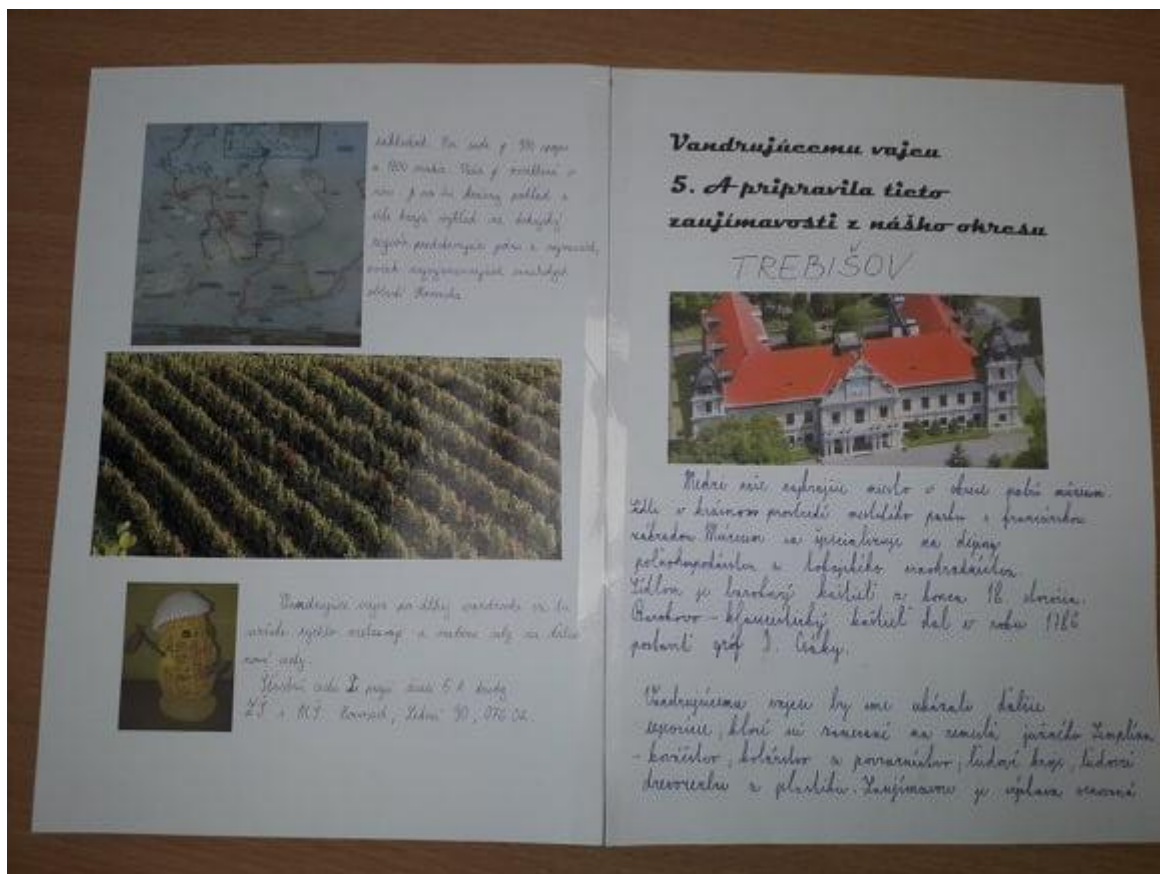 základné. Na
a 1800
na
víta krajší výhľad na tokajský
región predstavujúci jednu z najmenších,
avšak najvýznamnejších vinárskych
oblastí Slovenska.
Vandrujúce vajce po dlhej vandrovke sa tu
rýchlo a naberie sily na ďalšie
nové cesty.
Šťastnú cestu Ti prajú žiaci 5.A triedy
ZŠ s MŠ 90, 076 02.
Vandrujúcemu vajcu
5. A pripravila tieto
zaujímavosti z nášho okresu
TREBIŠOV
Medzi naše najkrajšie miesta v okrese patrí múzeum.
Sídli v krásnom prostredí mestského parku s francúzskou
záhradou. Múzeum sa špecializuje na dejiny
poľnohospodárstva a tokajského vinohradníctva.
Sídlom je barokový kaštieľ z konca 18. storočia.
Barokovo-klasicistický kaštieľ dal v roku 1786
postaviť gróf I. Csáky.
Vandrujúcemu vajcu by sme ukázali ďalšie
expozície, ktoré sú zamerané na remeslá južného Zemplína
- kováčstvo, kolárstvo a povrazníctvo, ľudové kroje, ľudovú
drevorezbu a plastiku. Zaujímavou je výstava venovaná